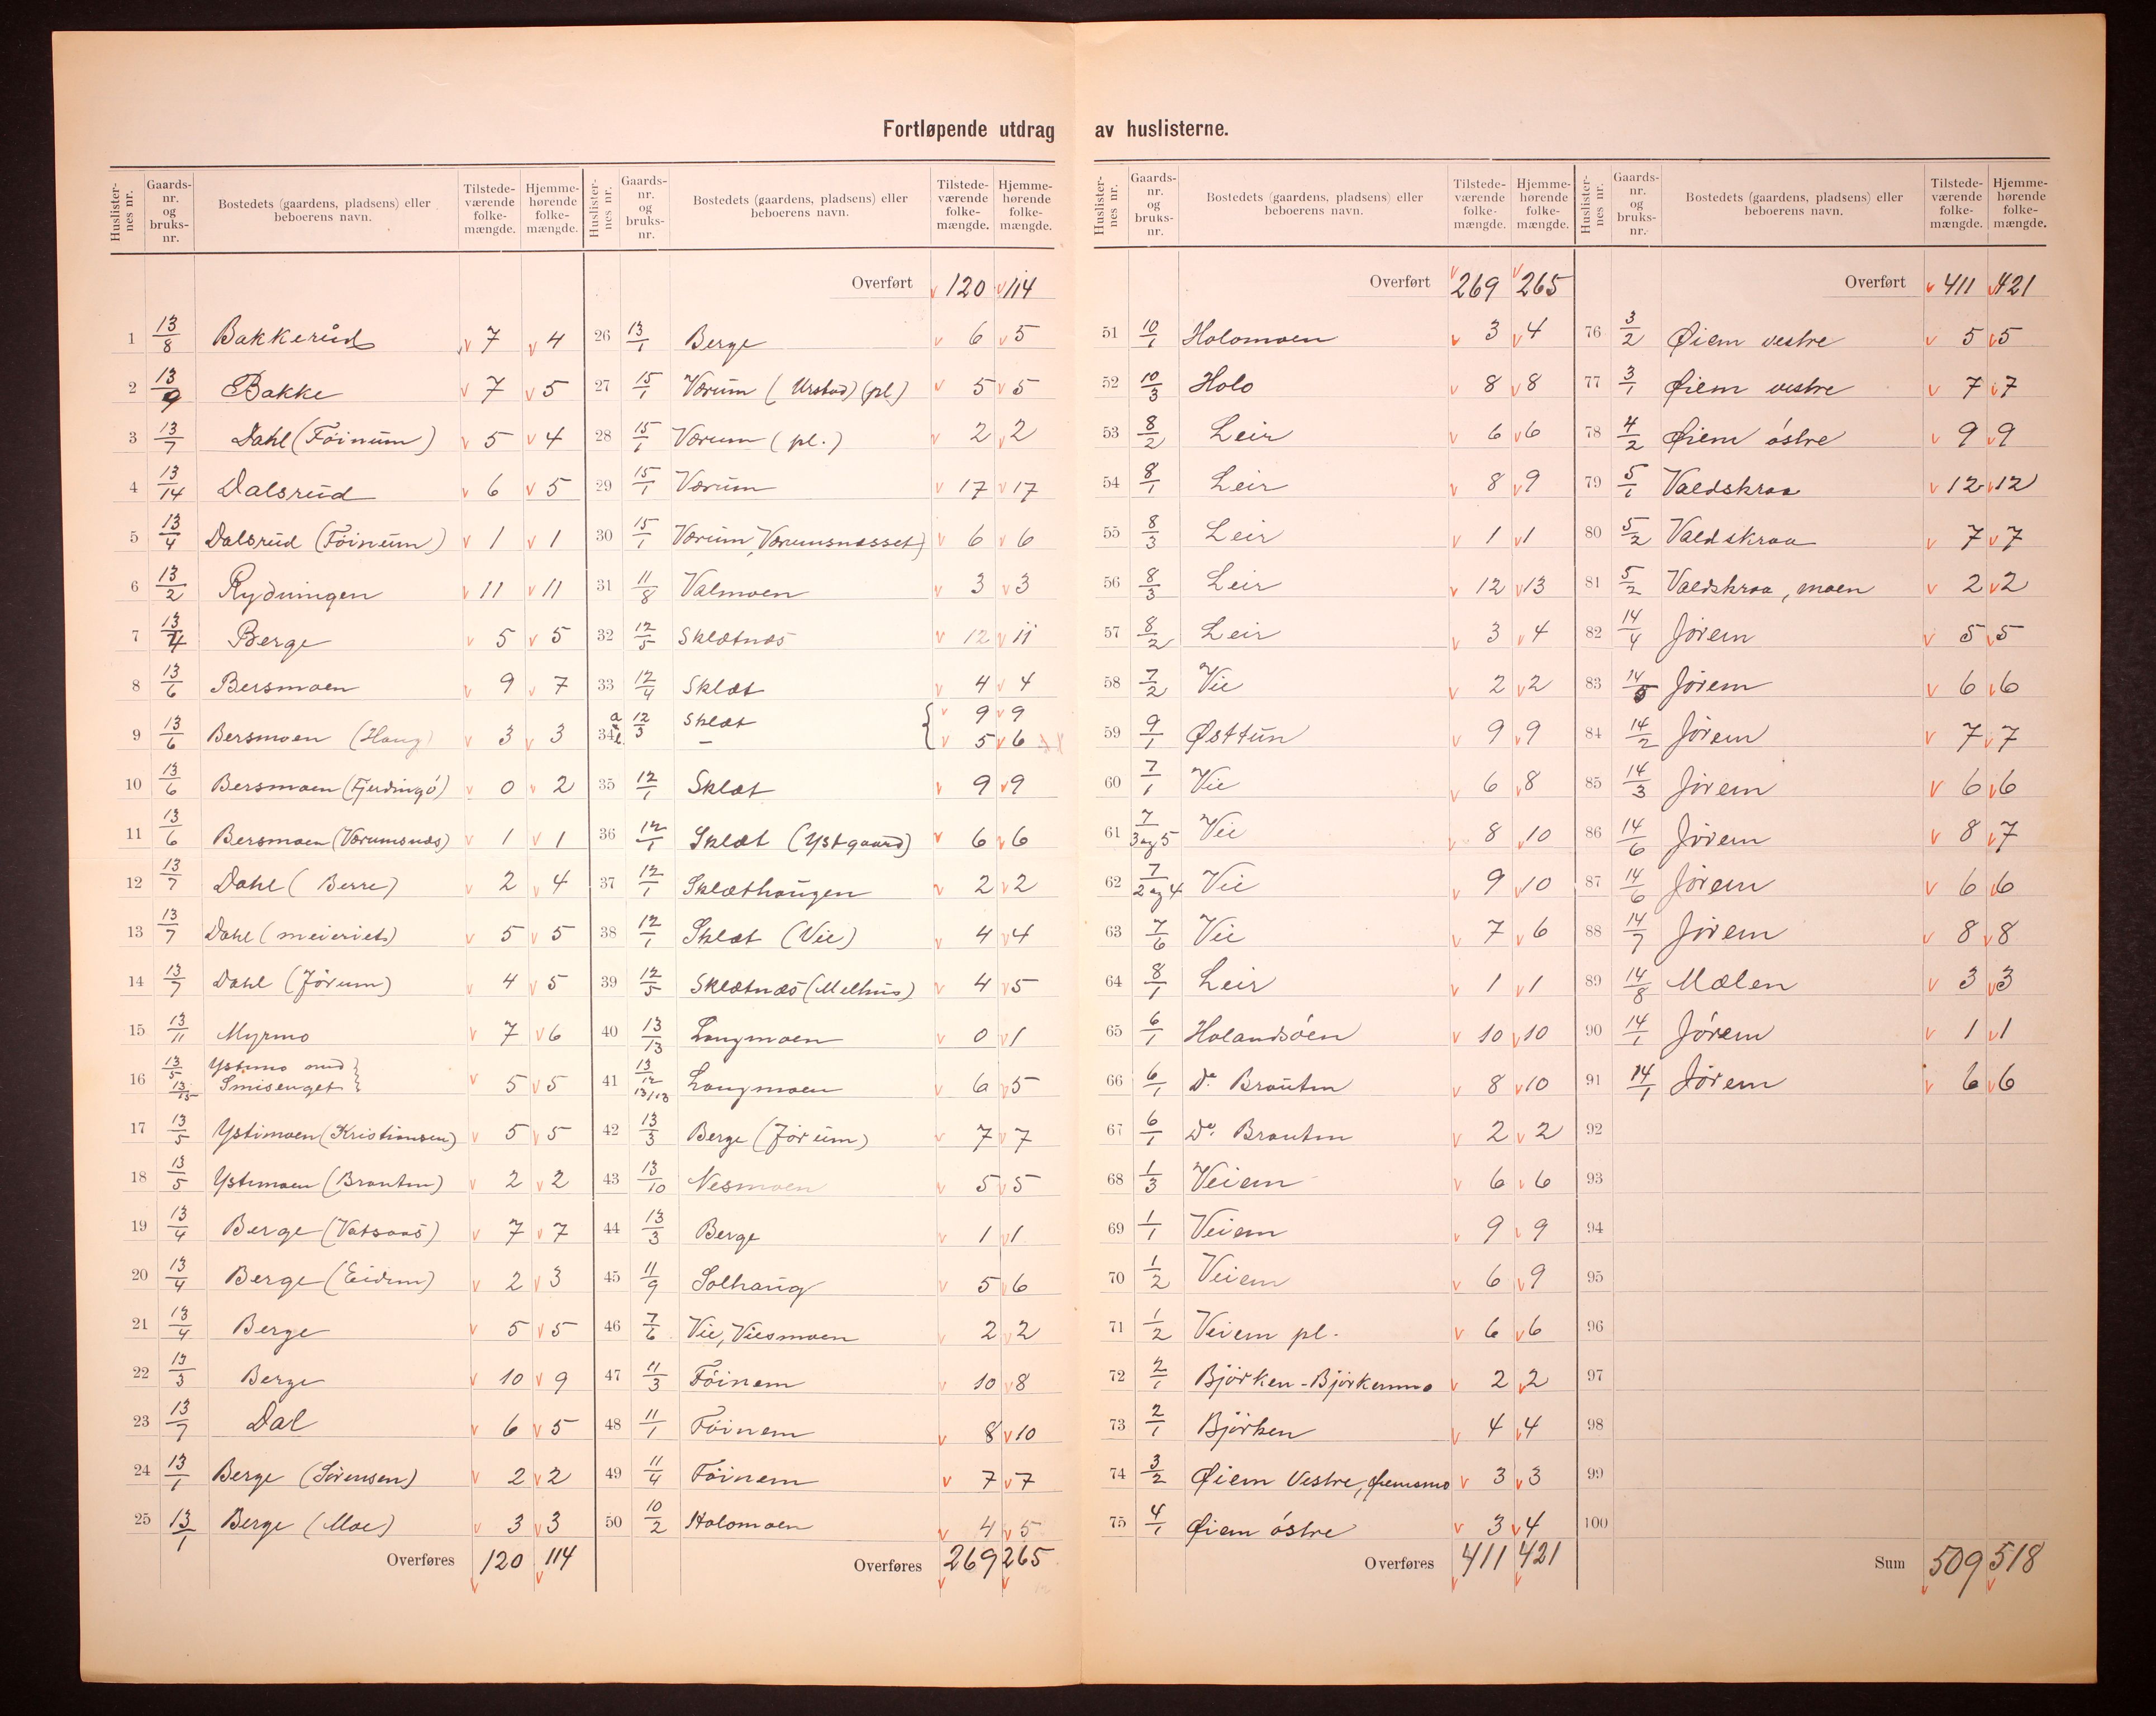 Fortløpende utdrag av huslisterne.
Huslisternes nr. Gaards-nr. og bruks-nr. Bostedets (gaardens, pladsens) eller beboerens navn. Tilstedeværende folkemængde. Hjemmehørende folkemængde.
1 13/8 Bakkerud 7 4
2 13/9 Bakke 7 5
3 13/7 Dahl (Föinum) 5 4
4 13/14 Dalsrud 6 5
5 13/4 Dalsrud (Föinum) 1 1
6 13/2 Rydningen 11 11
7 13/4 Berge 5 5
8 13/6 Bersmoen 9 7
9 13/6 Bersmoen (Haug) 3 3
10 13/6 Bersmoen (Fjerdingö) 0 2
11 13/6 Bersmoen (Værumsnæs) 1 1
12 13/7 Dahl (Berre) 2 4
13 13/7 Dahl (meieriet) 5 5
14 13/7 Dahl (Jörum) 4 5
15 13/11 Myrmo 7 6
16 13/5 Ystmo med }
13/15 Smisenget } 5 5
17 13/5 Ystimoen (Kristiansen) 5 5
18 13/5 Ystimoen (Brauten) 2 2
19 13/4 Berge (Vatsaas) 7 7
20 13/4 Berge (Eidum) 2 3
21 13/4 Berge 5 5
22 13/3 Berge 10 9
23 13/7 Dal 6 5
24 13/1 Berge (Sörensen) 2 2
25 13/1 Berge (Moe) 3 3
Overføres 120 114
Huslisternes nr. Gaards-nr. og bruks-nr. Bostedets (gaardens, pladsens) eller beboerens navn. Tilstedeværende folkemængde. Hjemmehørende folkemængde.
Overført 120 114
26 13/1 Berge 6 5
27 15/1 Værum (Urstad) (pl.) 5 5
28 15/1 Værum (pl.) 2 2
29 15/1 Værum 17 17
30 15/1 Værum, Værumsnæsset 6 6
31 11/8 Valmoen 3 3
32 12/5 Sklætnæs 12 11
33 12/4 Sklæt 4 4
34 a 12/3 Sklæt { 9 9
— { 5 6
35 12/1 Sklæt 9 9
36 12/1 Sklæt (Ystgaard) 6 6
37 12/1 Sklæthaugen 2 2
38 12/1 Sklæt (Vie) 4 4
39 12/5 Sklætnæs (Melhus) 4 5
40 13/13 Langmoen 0 1
41 13/12 13/13 Langmoen 6 5
42 13/3 Berge (Jörum) 7 7
43 13/10 Nesmoen 5 5
44 13/3 Berge 1 1
45 11/9 Solhaug 5 6
46 7/6 Vie, Viesmoen 2 2
47 11/3 Föinem 10 8
48 11/1 Föinem 8 10
49 11/4 Föinem 7 7
50 10/2 Holomoen 4 5
Overføres 269 265
Huslisternes nr. Gaards-nr. og bruks-nr. Bostedets (gaardens, pladsens) eller beboerens navn. Tilstedeværende folkemængde. Hjemmehørende folkemængde.
Overført 269 265
51 10/1 Holomoen 3 4
52 10/3 Holo 8 8
53 8/2 Leir 6 6
54 8/1 Leir 8 9
55 8/3 Leir 1 1
56 8/3 Leir 12 13
57 8/2 Leir 3 4
58 7/2 Vie 2 2
59 9/1 Østtun 9 9
60 7/1 Vie 6 8
61 7/3 og 5 Vie 8 10
62 7/2 og 4 Vie 9 10
63 7/6 Vie 7 6
64 8/1 Leir 1 1
65 6/1 Holandsöen 10 10
66 6/1 Do. Brauten 8 10
67 6/1 Do. Brauten 2 2
68 1/3 Veiem 6 6
69 1/1 Veiem 9 9
70 1/2 Veiem 6 9
71 1/2 Veiem pl. 6 6
72 2/1 Björken - Björkenmo 2 2
73 2/1 Björken 4 4
74 3/2 Øiem Vestre, Øiemsmo 3 3
75 4/1 Øiem östre 3 4
Overføres 411 421
Huslisternes nr. Gaards-nr. og bruks-nr. Bostedets (gaardens, pladsens) eller beboerens navn. Tilstedeværende folkemængde. Hjemmehørende folkemængde.
Overført 411 421
76 3/2 Øiem vestre 5 5
77 3/1 Øiem vestre 7 7
78 4/2 Øiem östre 9 9
79 5/1 Valdskraa 12 12
80 5/2 Valdskraa 7 7
81 5/2 Valdskraa, moen 2 2
82 14/4 Jörem 5 5
83 14/5 Jörem 6 6
84 14/2 Jörem 7 7
85 14/3 Jörem 6 6
86 14/6 Jörem 8 7
87 14/6 Jörem 6 6
88 14/7 Jörem 8 8
89 14/8 Mælen 3 3
90 14/1 Jörem 1 1
91 14/1 Jörem 6 6
92
93
94
95
96
97
98
99
100
Sum 509 518